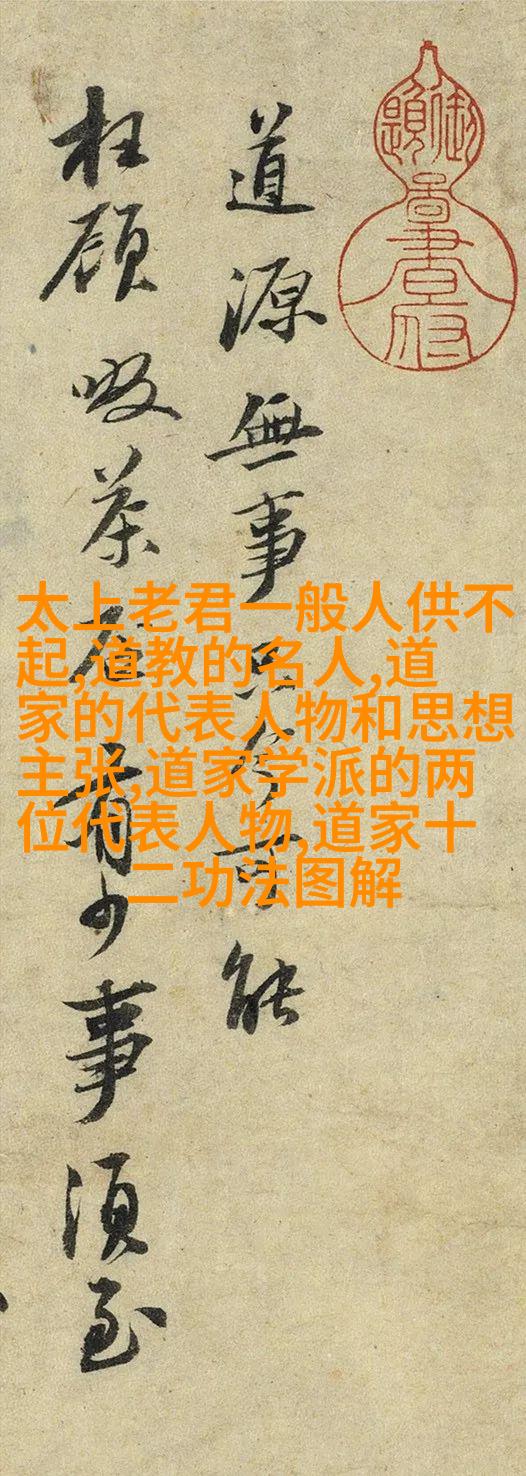 道源無事只今可能
枉顧啜茶否有少事須至
太上老君一般人供不
起,道教的名人,道
家的代表人物和思想
主张,道家学派的两
位代表人物,道家十
二功法图解